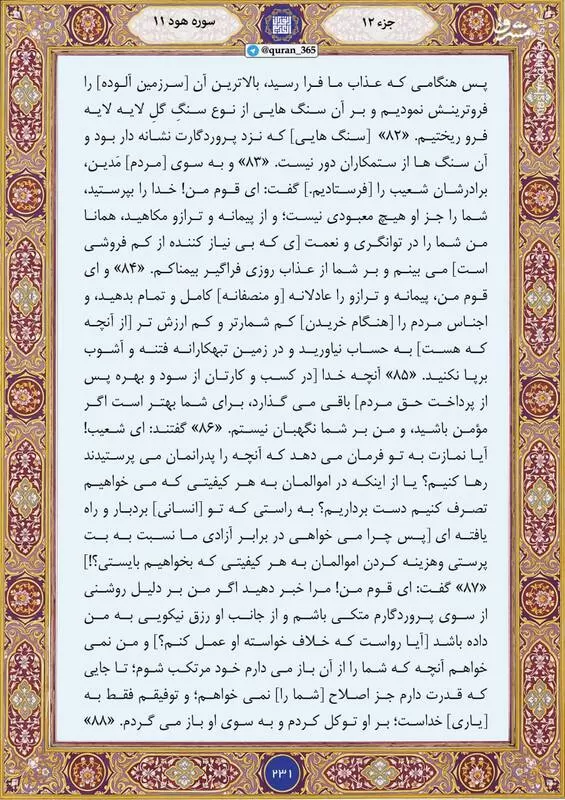 جزء ۱۲
سوره هود ۱۱
@quran_365
مشرق
پس هنگامی که عذاب ما فرا رسید، بالاترین آن [سرزمین آلوده] را
فروترینش نمودیم و بر آن سنگ هایی از نوع سنگِ گلِ لایه لایه
فرو ریختیم. «۸۲» [سنگ هایی] که نزد پروردگارت نشانه دار بود و
آن سنگ ها از ستمکاران دور نیست. «۸۳» و به سوی [مردم] مَدین،
برادرشان شعیب را [فرستادیم.] گفت: ای قوم من! خدا را بپرستید،
شما را جز او هیچ معبودی نیست؛ و از پیمانه و ترازو مکاهید، همانا
من شما را در توانگری و نعمت [ی که بی نیاز کننده از کم فروشی
است] می بینم و بر شما از عذاب روزی فراگیر بیمناکم. «۸۴» و ای
قوم من، پیمانه و ترازو را عادلانه [و منصفانه] کامل و تمام بدهید، و
اجناس مردم را [هنگام خریدن] کم شمارتر و کم ارزش تر [از آنچه
که هست] به حساب نیاورید و در زمین تبهکارانه فتنه و آشوب
برپا نکنید. «۸۵» آنچه خدا [در کسب و کارتان از سود و بهره پس
از پرداخت حق مردم] باقی می گذارد، برای شما بهتر است اگر
مؤمن باشید، و من بر شما نگهبان نیستم. «۸۶» گفتند: ای شعیب!
آیا نمازت به تو فرمان می دهد که آنچه را پدرانمان می پرستیدند
رها کنیم؟ یا از اینکه در اموالمان به هر کیفیتی که می خواهیم
تصرف کنیم دست برداریم؟ به راستی که تو [انسانی] بردبار و راه
یافته ای [پس چرا می خواهی در برابر آزادی ما نسبت به بت
پرستی وهزینه کردن اموالمان به هر کیفیتی که بخواهیم بایستی؟!]
«۸۷» گفت: ای قوم من! مرا خبر دهید اگر من بر دلیل روشنی
از سوی پروردگارم متکی باشم و از جانب او رزق نیکویی به من
داده باشد [آیا رواست که خلاف خواسته او عمل کنم؟] و من نمی
خواهم آنچه که شما را از آن باز می دارم خود مرتکب شوم؛ تا جایی
که قدرت دارم جز اصلاح [شما را] نمی خواهم؛ و توفیقم فقط به
[یاری] خداست؛ بر او توکل کردم و به سوی او باز می گردم. «۸۸»
۲۳۱